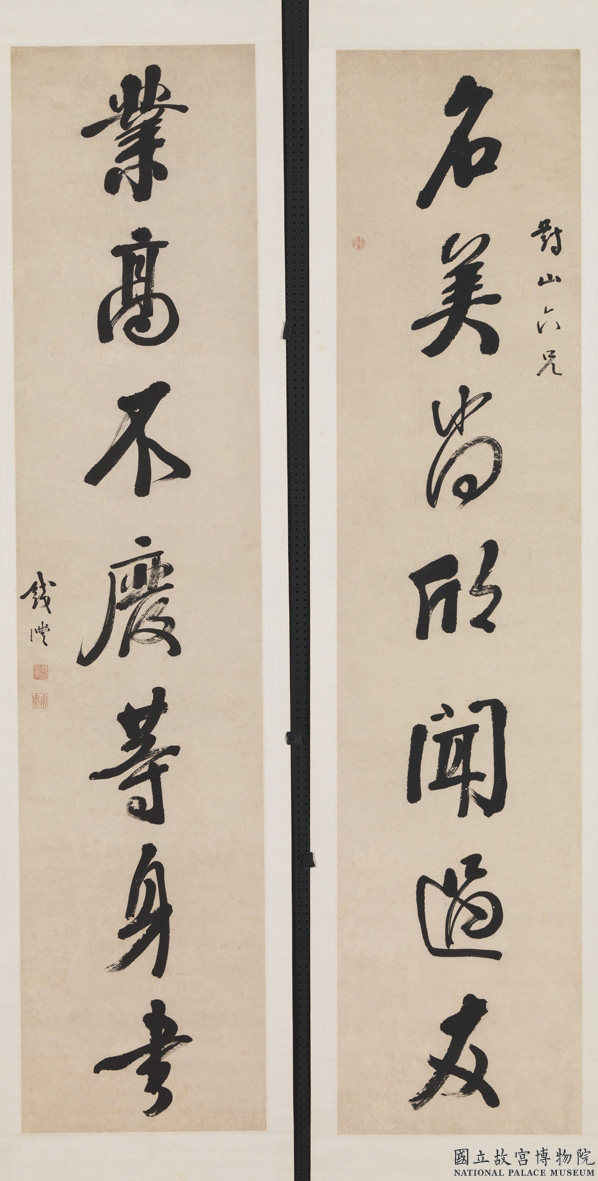 對山六兄
名美尚欣聞過友
業高不廢等身書
錢灃
國立故宮博物院
NATIONAL PALACE MUSEUM